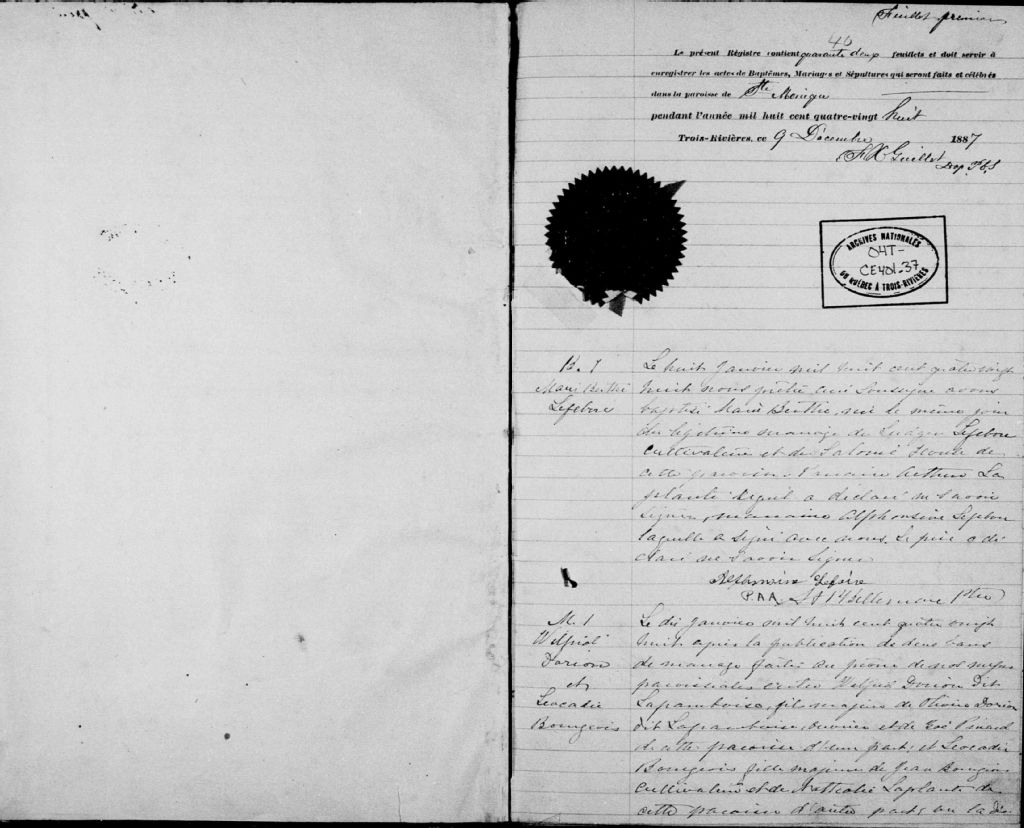 Feuillet premier
40
Le présent Régistre contient quarante deux feuillets et doit servir à
enregistrer les actes de Baptêmes, Mariages et Sépultures qui seront faits et célébrés
dans la paroisse de Ste Monique
pendant l'année mil huit cent quatre-vingt huit
Trois-Rivières, ce 9 Décembre 1887
F X Guillet
ARCHIVES NATIONALES
04T-
CE401-37
DU QUÉBEC À TROIS-RIVIÈRES
B. 1
Marie Berthe
Lefebvre
Le huit Janvier mil huit cent quatre vingt
huit nous prêtre curé soussigné avons
baptisé Marie Berthe, née le même jour
du légitime mariage de Ludger Lefebvre
cultivateur et de Salomé de
cette paroisse Parrain Arthur La
plante lequel a déclaré ne savoir
signer, marraine Alphonsine Lefebvre
laquelle a signé avec nous. Le père a dé
claré ne savoir signer
Alphonsine Lefebvre
Ptre
M. 1
Wilfrid
Dorion
et
Leocadie
Bourgeois
Le dix Janvier mil huit cent quatre vingt
huit après la publication de deux bans
de mariage faite au prône de nos messes
paroissiales entre Wilfrid Dorion dit
Laframboise, fils majeur de Olivier Dorion
dit Laframboise, ouvrier et de Zoé Pinard
de cette paroisse d'une part; et Leocadie
Bourgeois fille majeure de Jean Bourgeois
cultivateur et de Nathalie Laplante de
cette paroisse d'autre part, vu la dis